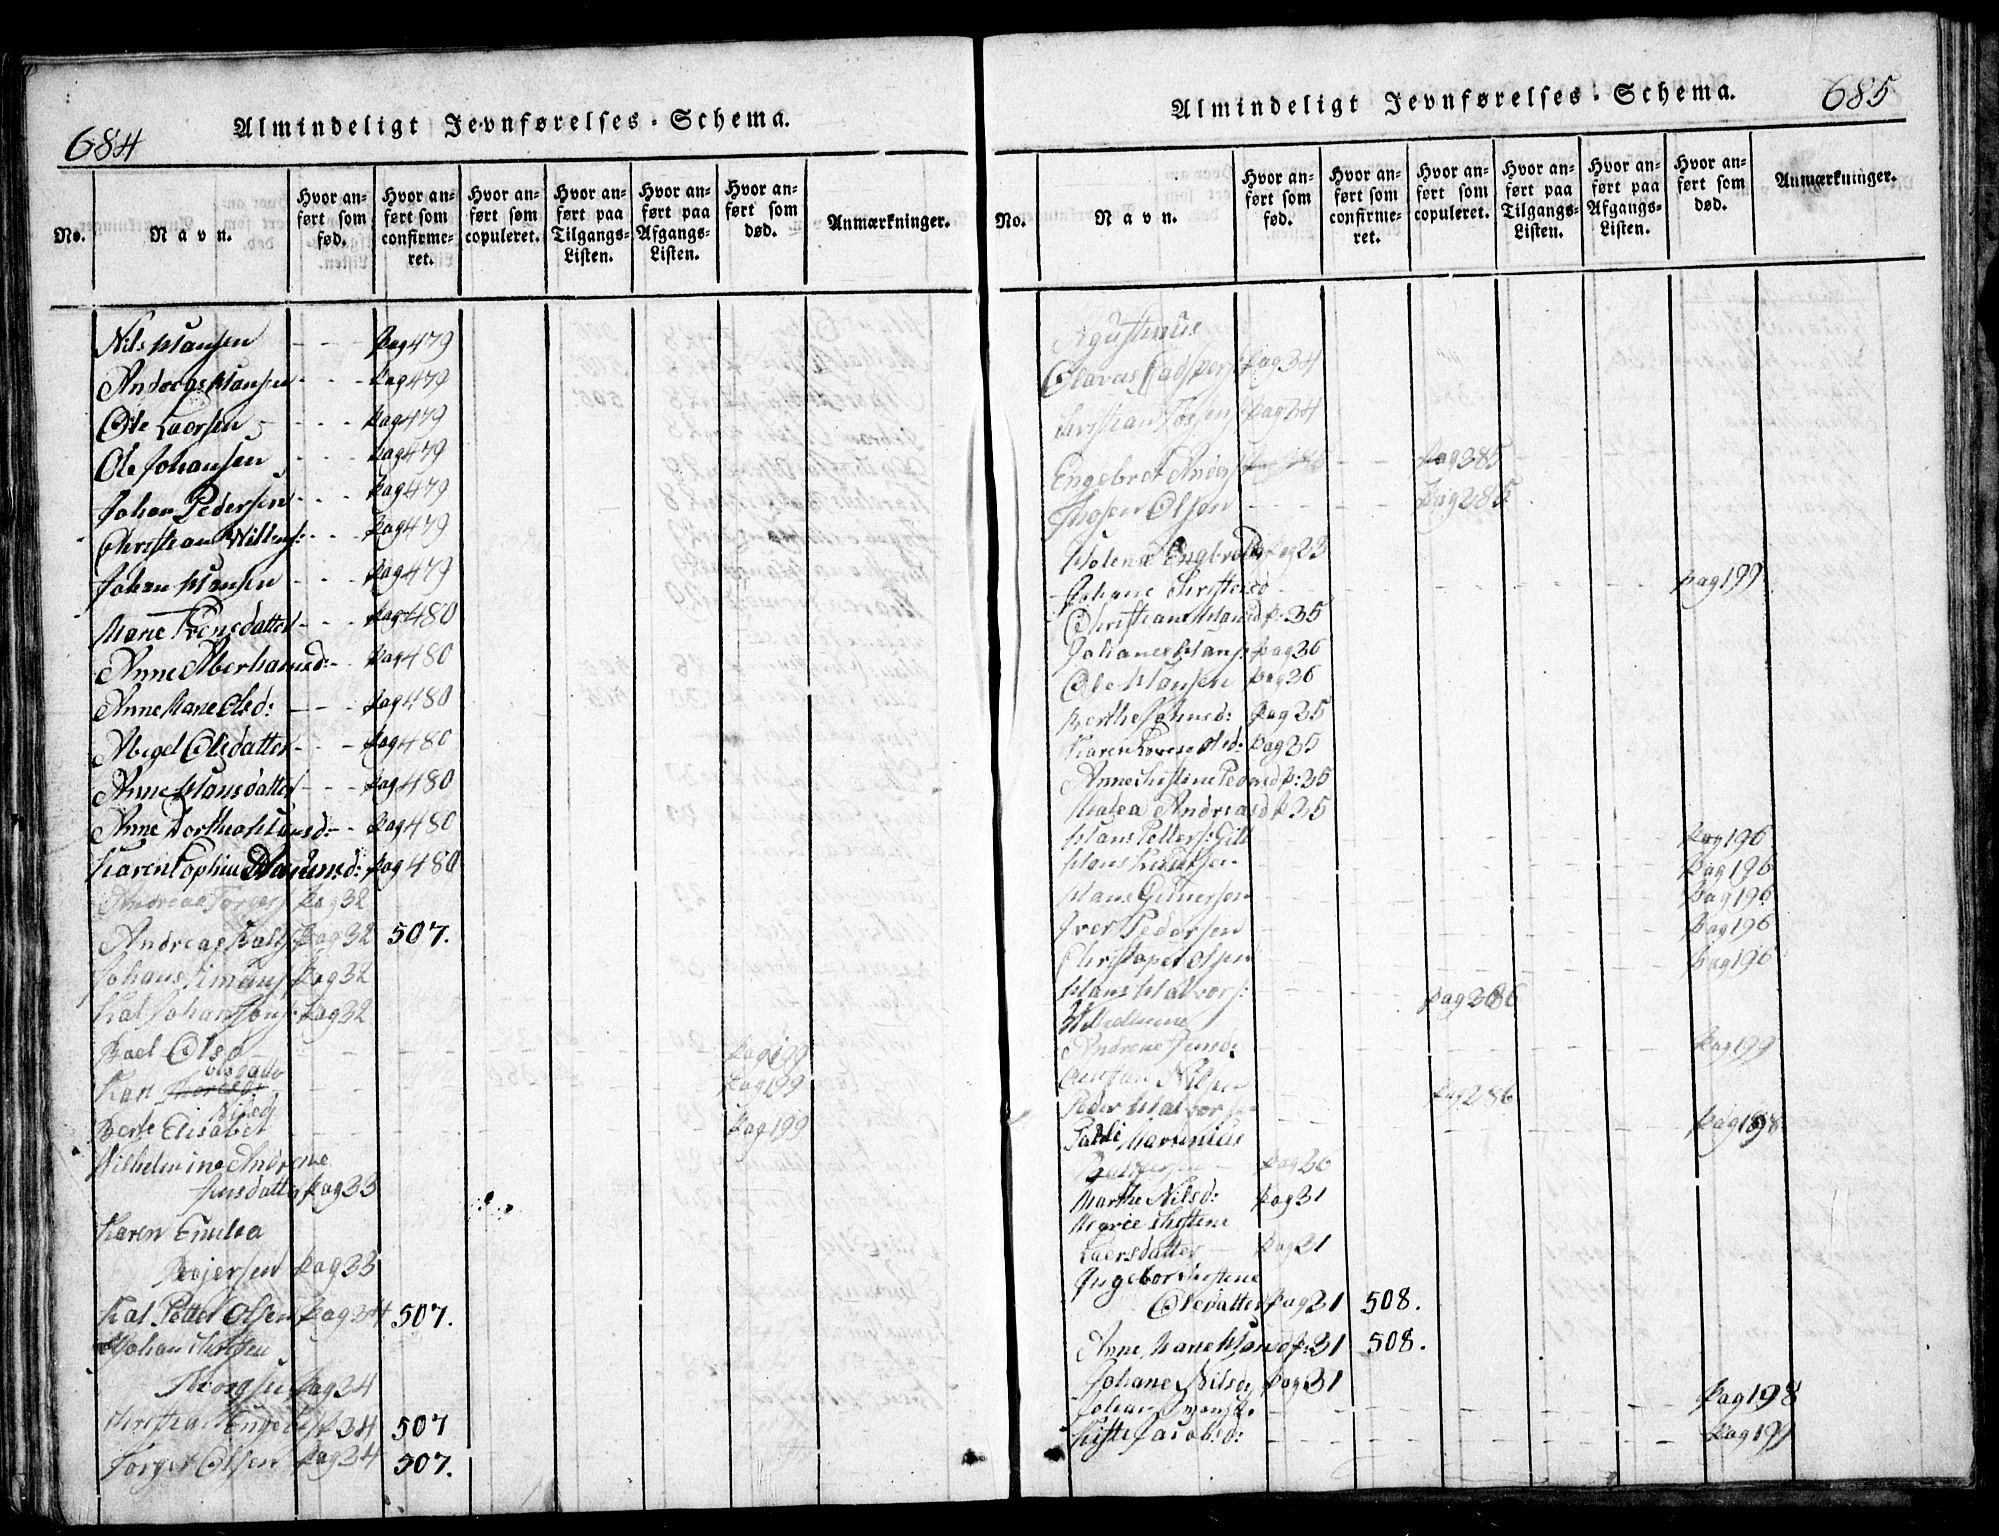 684
Almindeligt Jevnførelses-Schema.
No.
Navn.
Hvor anført som fød.
Hvor anført som confirmeret.
Hvor anført som copuleret.
Hvor anført paa Tilgangs-Listen.
Hvor anført paa Afgangs-Listen.
Hvor anført som død.
Anmærkninger.
Nils Hansen - - - Pag 479
Andreas Hansen - - - Pag 479
Ole Laersen - - - Pag 479
Ole Johansen - - - Pag 479
Johan Pedersen - - - Pag 479
Christian Willums: - - - Pag 479
Johan Hansen - - - Pag 479
Marie Svensdatter - - - Pag 480
Anne Aberhamsd: - - Pag 480
Anne Marie Olsd: - - - Pag 480
Abigel Olsdatter - - - Pag 480
Anne Hansdatter - - - Pag 480
Anne Dorthea Hansd: - - Pag 480
Karen Sophie Pag 480
Andreas Torgers Pag 32
Andreas Pag 32 507.
Johans Simens Pag 32
Kal Johan Pag 32
Olsd Pag 199
Kari olsdatter Pag 199
Nilsd
Berte Elisabet Pag 199
Wilhelmine Andrene
Jensdatter Pag 33
Karen Emilea
Bojersen Pag 33
Kal Petter Olsen Pag 34 507.
Johan
Pag 34
Christian Engebr P 34 507
Torger Olsen Pag 34 507.
685
Almindeligt Jevnførelses-Schema.
No.
Navn.
Hvor anført som fød.
Hvor anført som confirmeret.
Hvor anført som copuleret.
Hvor anført paa Tilgangs-Listen.
Hvor anført paa Afgangs-Listen.
Hvor anført som død.
Anmærkninger.
Agustinus
Olavus Pag 34
Christian Pag 34
Engebret Anders - - Pag 385
Olsen - - - Pag 285
Holene Engbretsd Pag 23
Johane Christensd - - - Pag 199
Christiane Hansd P: 35
Johanes Hans: Pag 36
Ole Hansen Pag 36
Berthe Johnsd: Pag 35
Karen Lovise Olsd: Pag 35
Anne Christine Pedersd P: 35
Malea Andreasd P 35
Hans Petters: Gill Pag 196
Hans Knutsen Pag 196
Hans Gunersen Pag 196
Iver Pedersen Pag 196
Christopher Olsen Pag 196
Hans Halvors: - - Pag 286
Wilhelmine
Andrene Jensd: Pag 199
Christian Nilsen
Peder Halvorsen Pag 286
Martinius Pag 198
Pag 36
Marthe Nilsd: Pag 31
Marie Christene
Laersdatter Pag 31
Ingebor Christene
Olsdatter Pag 31 508.
Anne Marie Hansd P: 31 508.
Johane Nilsd Pag 31
Johan Pag 198
Jacobsd: - - - Pag 199